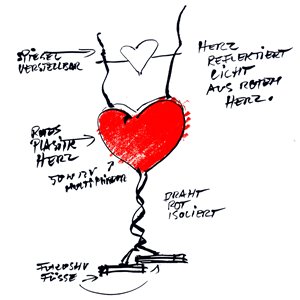 SPIEGEL
VERSTELLBAR
HERZ
REFLEKTIERT
LICHT
AUS ROTEM
HERZ.
ROTES
PLASTIK
HERZ
50W 12V
MULTIMIRROR
DRAHT
ROT
ISOLIERT
FÜSSE